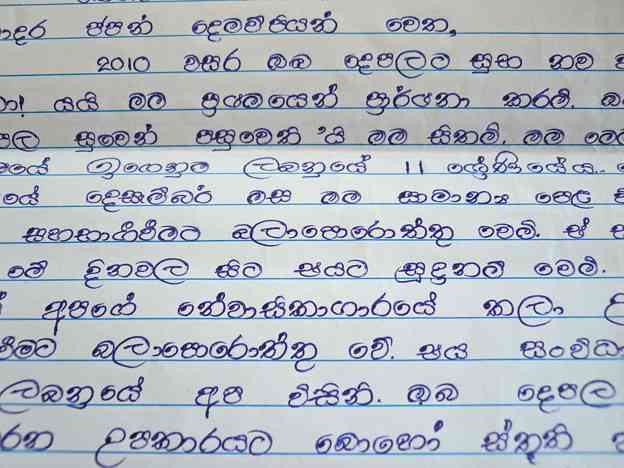 දෙමව්පියන් වෙත,
2010 වසර ඔබ දෙපලට සුභ නව
යයි මම ප්‍රථමයෙන් ප්‍රාර්ථනා කරමි.
සුවෙන් පසුවෙති 'යි මම සිතමි. මම
ඉගෙනුම ලබනුයේ 11 ශ්‍රේණියේය.
දෙසැම්බර් මස මම සාමාන්‍ය පෙළ
සහභාගීවීමට බලාපොරොත්තු වෙමි.
මේ දිනවල සිට සයට සූදානම් වෙමි.
අපගේ නේවාසිකාගාරයේ කලා
බලාපොරොත්තු වේ. සය සංවිධා
ලබනුයේ අප විසිනි. ඔබ දෙපල
කරන උපකාරයට බොහෝ ස්තූති